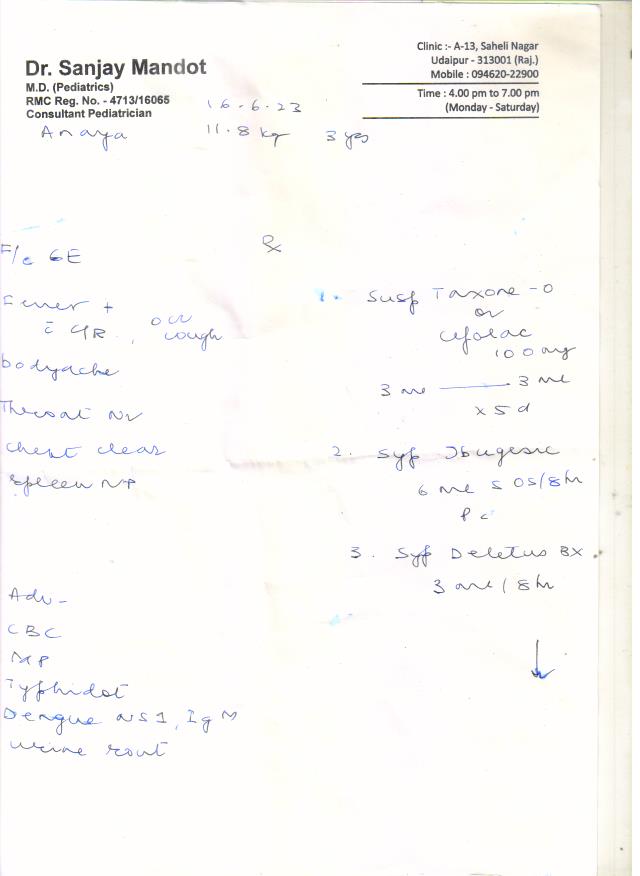 Dr. Sanjay Mandot
M.D. (Pediatrics)
RMC Reg. No. - 4713/16065
Consultant Pediatrician
Clinic :- A-13, Saheli Nagar
Udaipur - 313001 (Raj.)
Mobile : 094620-22900
Time : 4.00 pm to 7.00 pm
(Monday - Saturday)
16.6.23
Anaya 11.8 kg 3 yrs
F/c GE
Fever +
occ cough
bodyache
Throat
chest clear
spleen NP
Adv -
CBC
MP
Typhidot
Dengue NS1, IgM
urine rout
℞
1. Susp Taxone-O
or
Cefolac
100 mg
3 ml — 3 ml
x 5 d
2. Syp Ibugesic
6 ml SOS/8hr
Pc
3. Syp Deletus BX
3 ml / 8hr